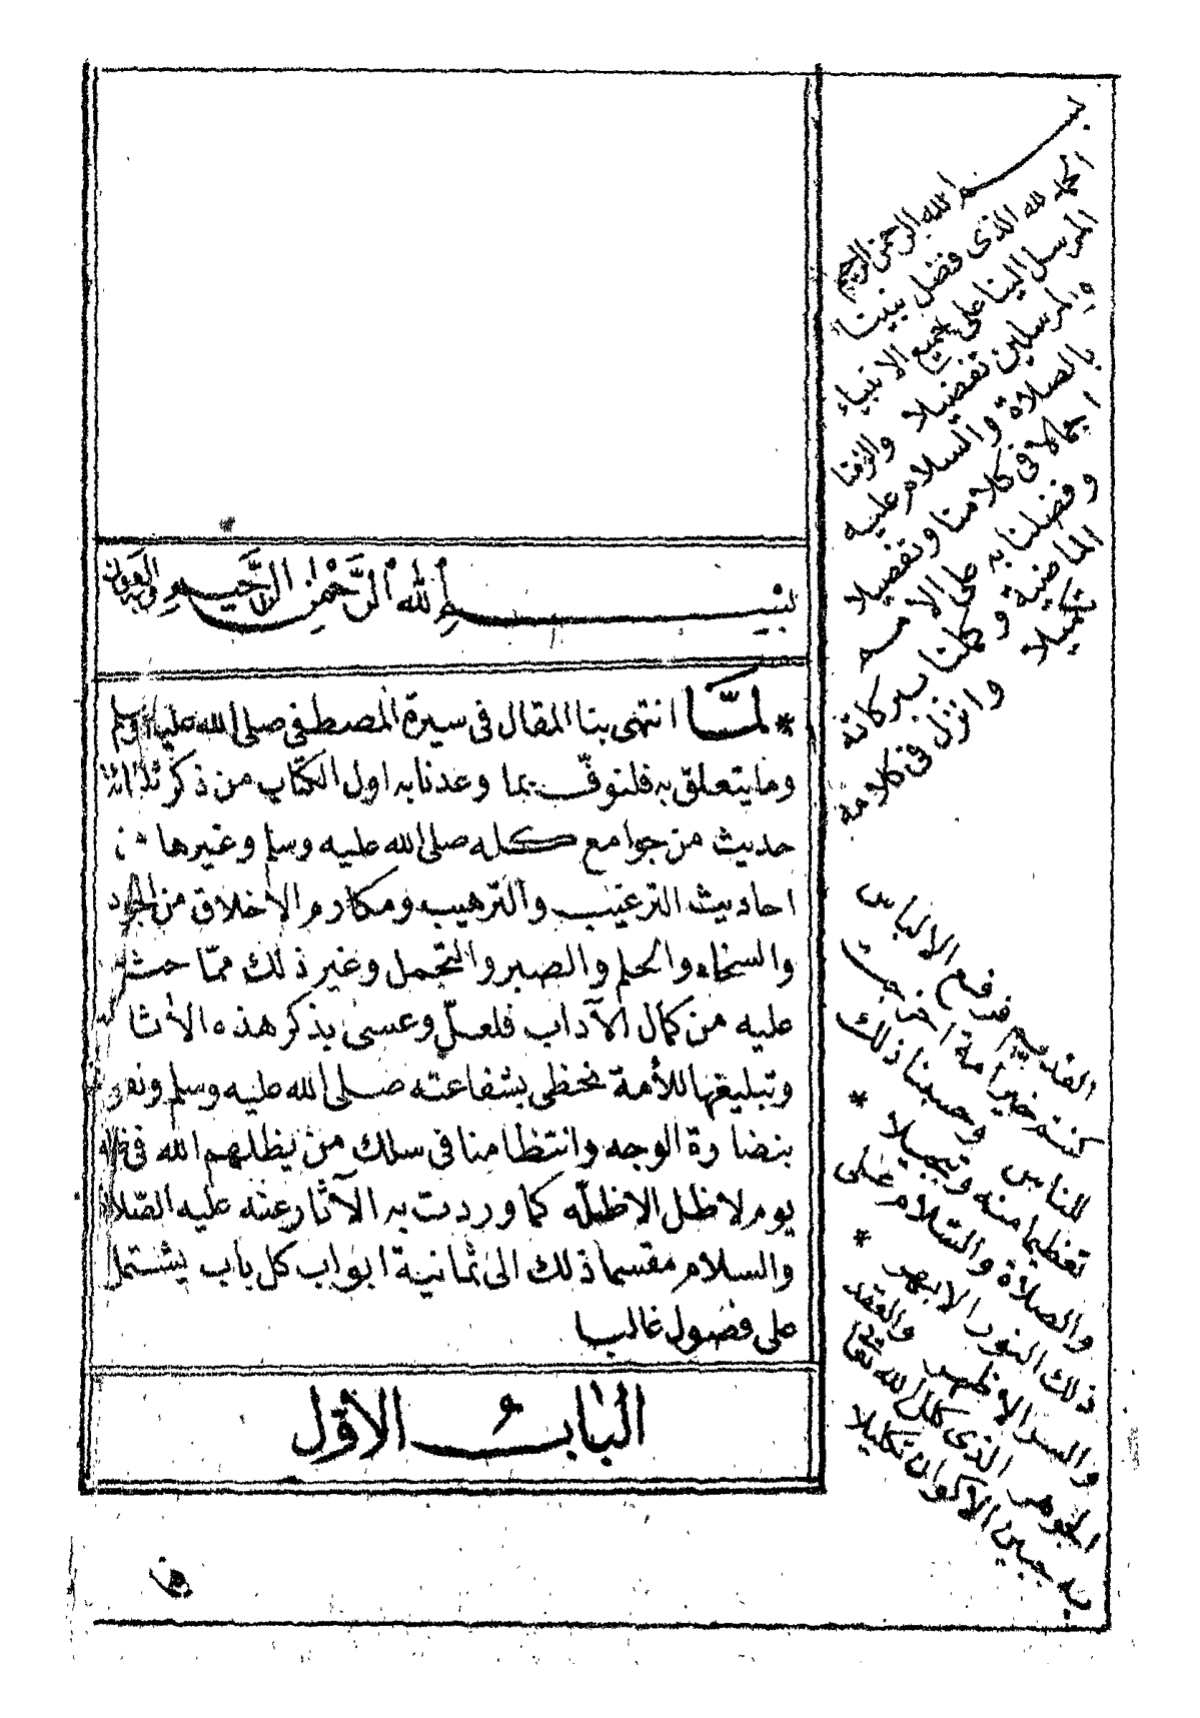 بسم الله الرحمن الرحيم وبه العون
* لمّا انتهى بنا المقال فى سيرة المصطفى صلى الله عليه وسلم
وما يتعلق به فلنوفّ بما وعدنا به اول الكتاب من ذكر
حديث من جوامع كلمه صلى الله عليه وسلم وغيرها
احاديث الترغيب والترهيب ومكارم الاخلاق من الجود
والسخاء والحلم والصبر والتحمل وغير ذلك ممّا حث
عليه من كمال الآداب فلعلّ وعسى بذكر هذه الأثا
وتبليغها للأمة نحظى بشفاعته صلى الله عليه وسلم
بنضارة الوجه وانتظامنا فى سلك من يظلهم الله فى
يوم لا ظل الا ظلّه كما وردت به الآثار عنه عليه الصّلاة
والسلام مقسما ذلك الى ثمانية ابواب كل باب يشتمل
على فصول غالبا
الباب الأوّل
بسم الله الرحمن الرحيم
الحمد لله الذى فضل نبينا
المرسل الينا على جميع الانبياء
والمرسلين تفضيلا والزمنا
بالصلاة والسلام عليه
اجمالا فى كلامنا وتفصيلا
وفضلنا به على الامم
الماضية وكملنا ببركاته
تكميلا وانزل فى كلامه
القديم فرفع الالباس
كنتم خير امة اخرجت
للناس وحسبنا ذلك
تعظيما منه وتبجيلا *
والصلاة والسّلام على
ذلك النور الابهر *
والسر الاظهر والعقد
الجوهر الذى كلل الله تعالى
به جبين الاكوان تكليلا